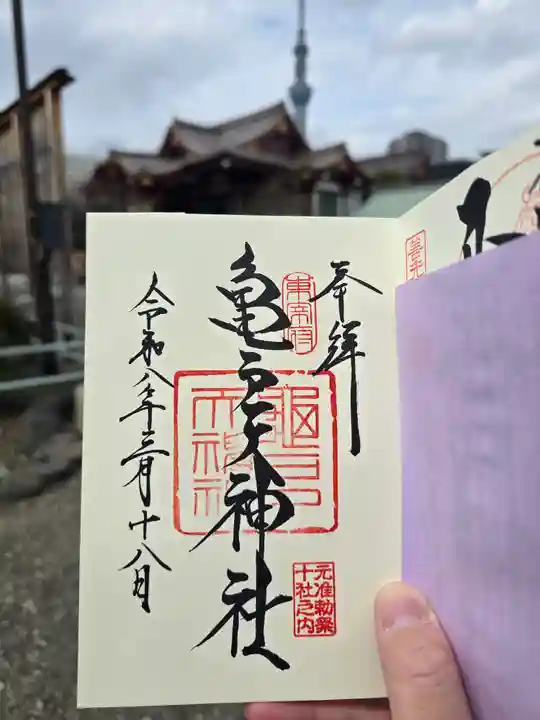 奉拝
東宰府
亀戸天神社
亀戸
天神社
元准勅祭
十社之内
令和八年三月十八日